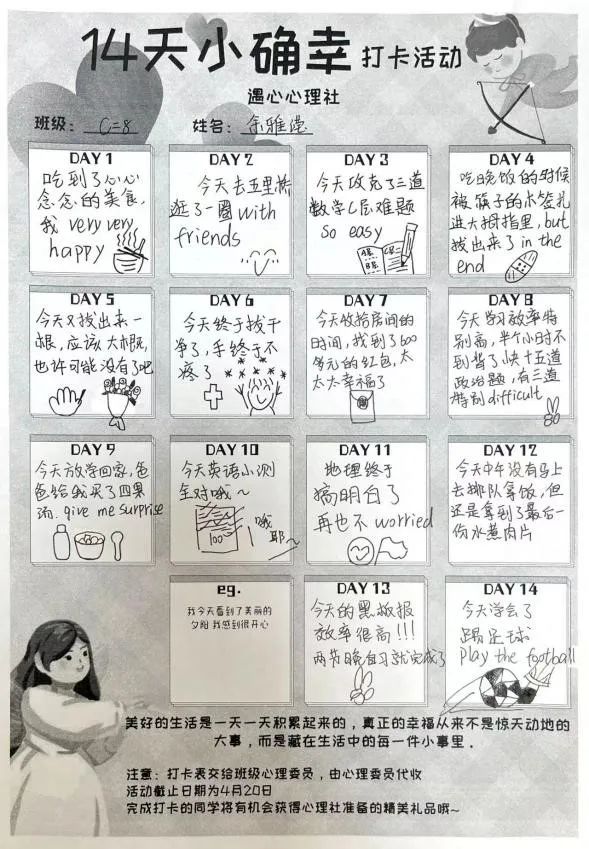 14天小确幸 打卡活动
遇心心理社
班级: C28 姓名: 余雅莹
DAY 1
吃到了心心
念念的美食,
我 very very
happy
DAY 2
今天去五里桥
逛了一圈 with
friends
DAY 3
今天攻克了三道
数学C层难题
so easy
DAY 4
吃晚饭的时候
被筷子的木签扎
进大拇指里, but
找出来了 in the
end
DAY 5
今天又找出来一
根, 应该大概,
也许可能没有了吧
DAY 6
今天终于拔干
净了, 手终于不
疼了
DAY 7
今天收拾房间的
时间, 找到了600
多元的红包, 太
太太幸福了
DAY 8
今天学习效率特
别高, 半个小时不
到背了快十五道
政治题, 有三道
特别 difficult
DAY 9
今天放学回家, 爸
爸给我买了四果
汤. give me surprise
DAY 10
今天英语小测
全对哦~
100
哦
耶~
DAY 11
地理终于
搞明白了
再也不 worried
DAY 12
今天中午没有马上
去排队拿饭, 但
还是拿到了最后一
份水煮肉片
eg.
我今天看到了美丽的
夕阳 我感到很开心
DAY 13
今天的黑板报
效率很高!!!
两节晚自习就完成了
DAY 14
今天学会了
踢足球
play the football
美好的生活是一天一天积累起来的，真正的幸福从来不是惊天动地的
大事，而是藏在生活中的每一件小事里．
注意：打卡表交给班级心理委员，由心理委员代收
活动截止日期为4月20日
完成打卡的同学将有机会获得心理社准备的精美礼品哦~